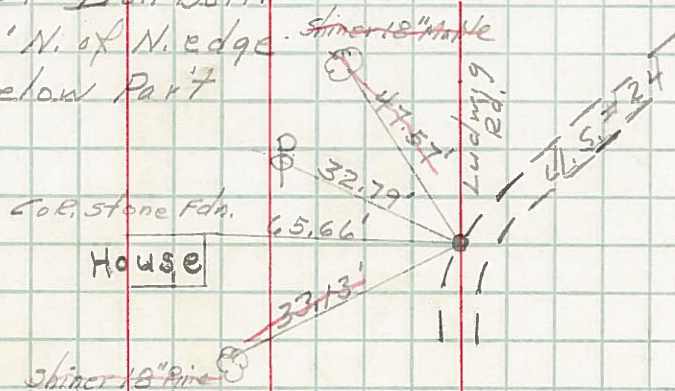 'N. of N. edge
Shiner 18" Maple
elow Par't
47.57'
Ludwig Rd.
U.S. #24
32.79'
Cor. Stone Fdn.
65.66'
House
33.13'
Shiner 18" Pine